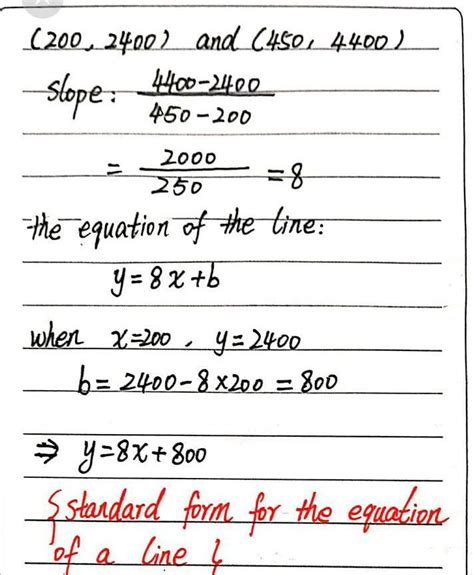 (200, 2400) and (450, 4400)
slope: 4400-2400
450-200
= 2000
250
=8
the equation of the line:
y=8x+b
when x=200, y=2400
b= 2400-8×200 = 800
⇒ y=8x+800
{standard form for the equation
of a line}